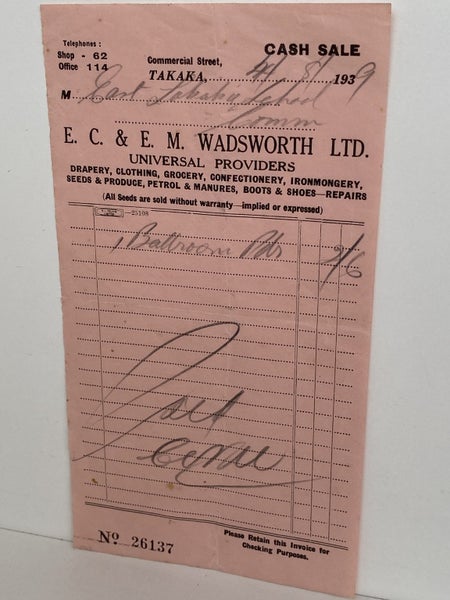 Telephones :
Shop - 62
Office 114
CASH SALE
Commercial Street,
TAKAKA, 4/8/ 1939
M East Takaka School
Comm
E. C. & E. M. WADSWORTH LTD.
UNIVERSAL PROVIDERS
DRAPERY, CLOTHING, GROCERY, CONFECTIONERY, IRONMONGERY,
SEEDS & PRODUCE, PETROL & MANURES, BOOTS & SHOES—REPAIRS
(All Seeds are sold without warranty—implied or expressed)
—25108
1 Ballroom Pdr 2/6
No 26137
Please Retain this Invoice for
Checking Purposes.